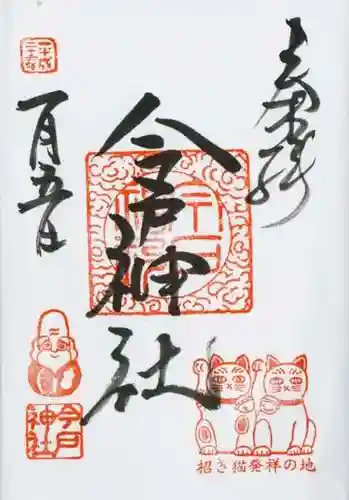 奉拝
今戸神社
一月五日
平成
二十五年
今戸
神社
招き猫発祥の地